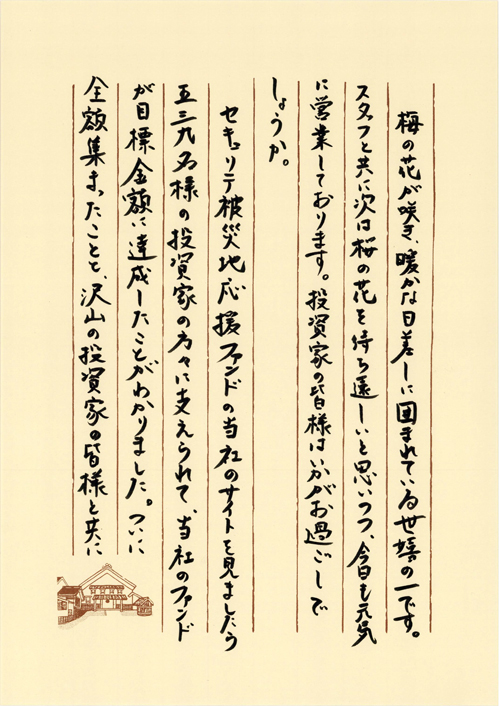 梅の花が咲き、暖かな日差しに囲まれている世嬉の一です。
スタッフと共に次は桜の花を待ち遠しいと思いつつ、今日も元気
に営業しております。投資家の皆様はいかがお過ごしで
しょうか。
セキュリテ被災地応援ファンドの当社のサイトを見ましたら
五三九名様の投資家の方々に支えられて、当社のファンド
が目標金額に達成したことがわかりました。ついに
全額集まったことと、沢山の投資家の皆様と共に